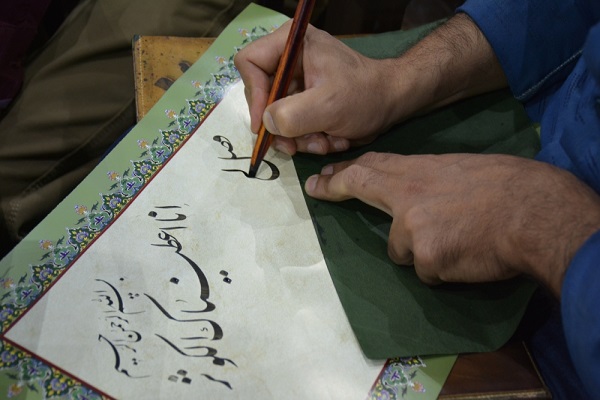 بسم الله الرحمن الرحیم
انا اعطیناک الکوثر